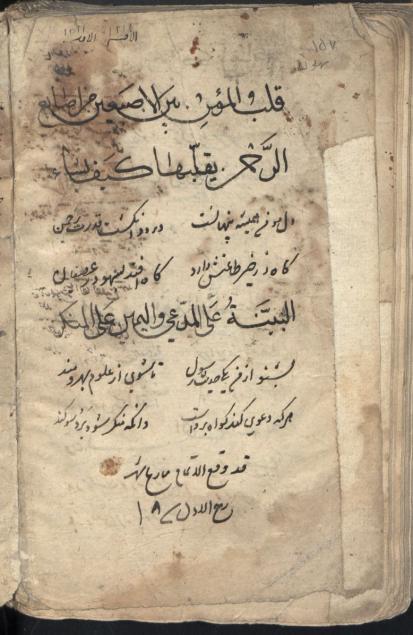 قلب المؤمن بین الاصبعین من اصابع
الرحمن یقلبها کیف یشاء
دل مومن همیشه پنهانست در دو انگشت قدرت رحمن
گاه در خیر طاعتش دارد گاه افتد بهود عصیان
البینة علی المدعی والیمین علی المنکر
بشنو از من یکی حدیث رسول تا شوی از علوم بهره‌مند
هر که دعوی کند گواه بر اوست وانکه منکر شود برو سوگند
قد وقع الاتمام بتاریخ شهر
ربیع الاول